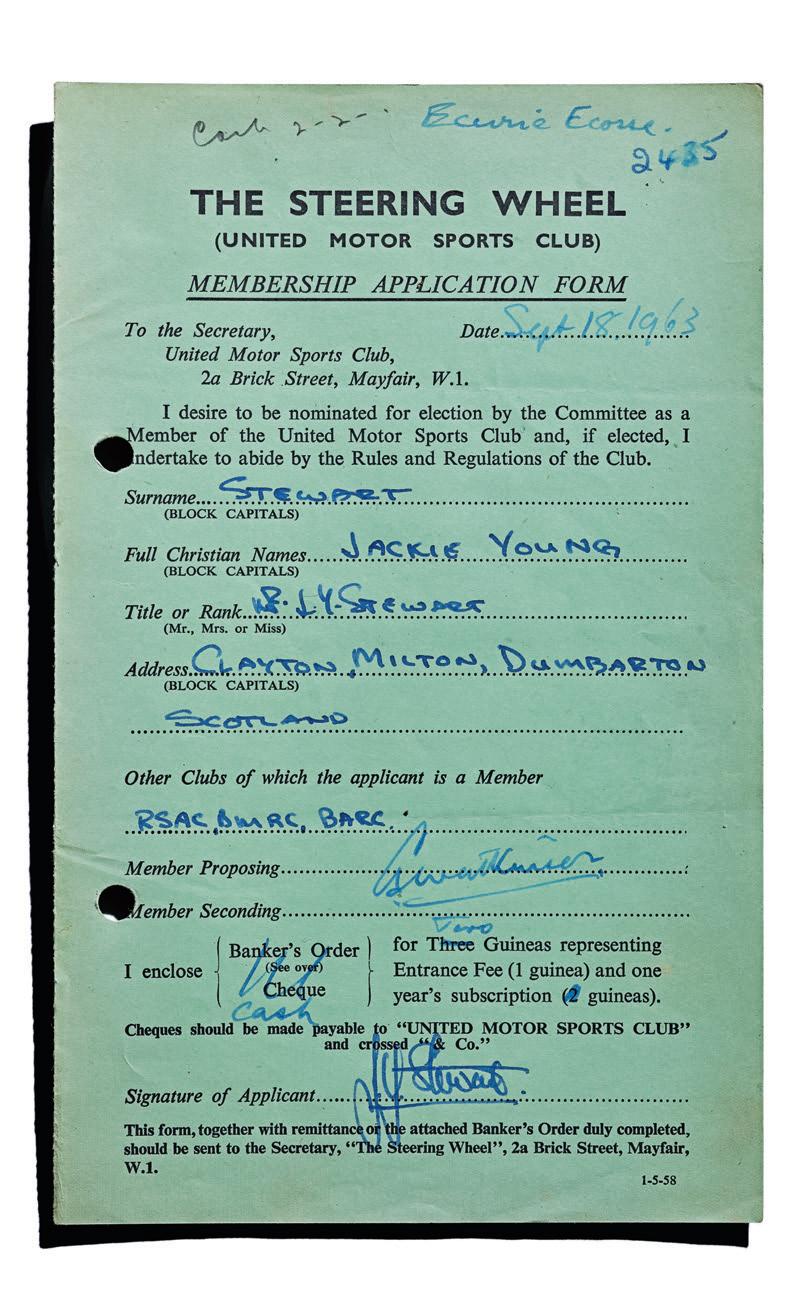 Cash 2-2- Ecurie Ecosse.
2435
THE STEERING WHEEL
(UNITED MOTOR SPORTS CLUB)
MEMBERSHIP APPLICATION FORM
To the Secretary, Date Sept 18. 1963
United Motor Sports Club,
2a Brick Street, Mayfair, W.1.
I desire to be nominated for election by the Committee as a
Member of the United Motor Sports Club and, if elected, I
undertake to abide by the Rules and Regulations of the Club.
Surname STEWART
(BLOCK CAPITALS)
Full Christian Names JACKIE YOUNG
(BLOCK CAPITALS)
Title or Rank MR. J.Y. STEWART
(Mr., Mrs. or Miss)
Address CLAYTON, MILTON, DUMBARTON
(BLOCK CAPITALS)
SCOTLAND
Other Clubs of which the applicant is a Member
RSAC, BMRC, BARC.
Member Proposing
Member Seconding
Two
I enclose Banker's Order (See over) Cheque for Three Guineas representing
Entrance Fee (1 guinea) and one
year's subscription (2 guineas).
Cash
Cheques should be made payable to "UNITED MOTOR SPORTS CLUB"
and crossed "& Co."
Signature of Applicant JY Stewart.
This form, together with remittance or the attached Banker's Order duly completed,
should be sent to the Secretary, "The Steering Wheel", 2a Brick Street, Mayfair,
W.1.
1-5-58